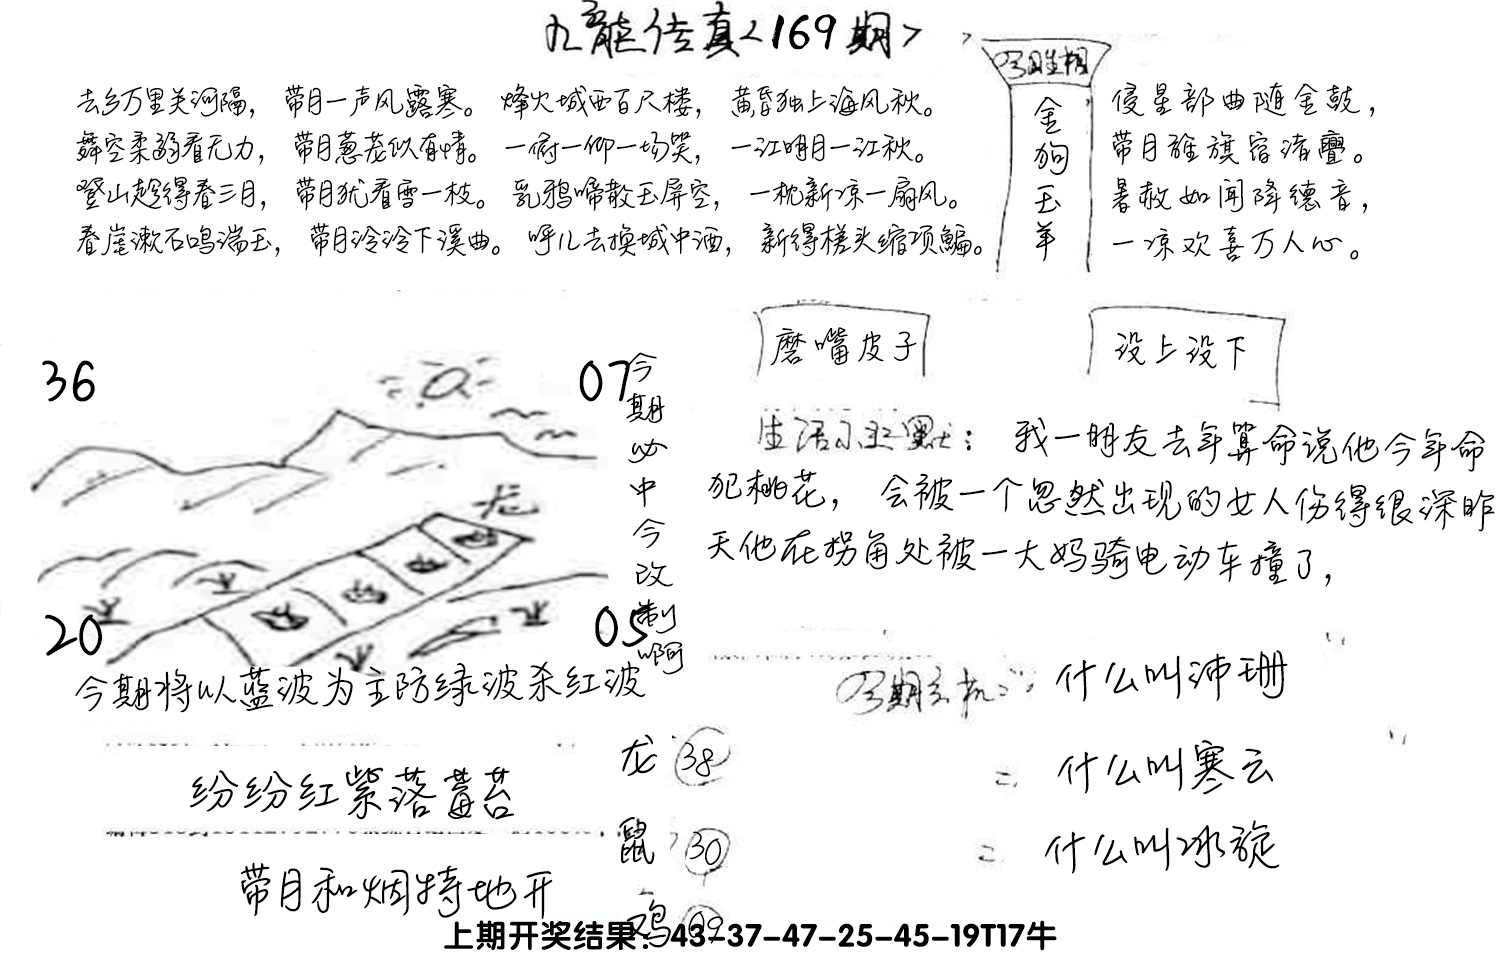 九龙传真<169期>
去乡万里关河隔，带月一声风露寒。烽火城西百尺楼，黄昏独上海风秋。
舞空柔弱看无力，带月葱茏似有情。一俯一仰一场笑，一江明月一江秋。
登山趁得春三月，带月犹看雪一枝。乳鸦啼散玉屏空，一枕新凉一扇风。
春崖漱石鸣湍玉，带月泠泠下溪曲。呼儿去换城中酒，新得槎头缩项鳊。
金狗玉羊
侵星部曲随金鼓，
带月旌旗宿渚亹。
暑赦如闻降德音，
一凉欢喜万人心。
磨嘴皮子
没上没下
生活小幽默：我一朋友去年算命说他今年命
犯桃花，会被一个忽然出现的女人伤得很深昨
天他在拐角处被一大妈骑电动车撞了，
36
07
龙
20
05
今期必中今改制啊
今期将以蓝波为主防绿波杀红波
纷纷红紫落莓苔
带月和烟特地开
龙 38
鼠 30
鸡 09
今期玄机：什么叫沛珊
= 什么叫寒云
= 什么叫冰旋
上期开奖结果：43-37-47-25-45-19T17牛